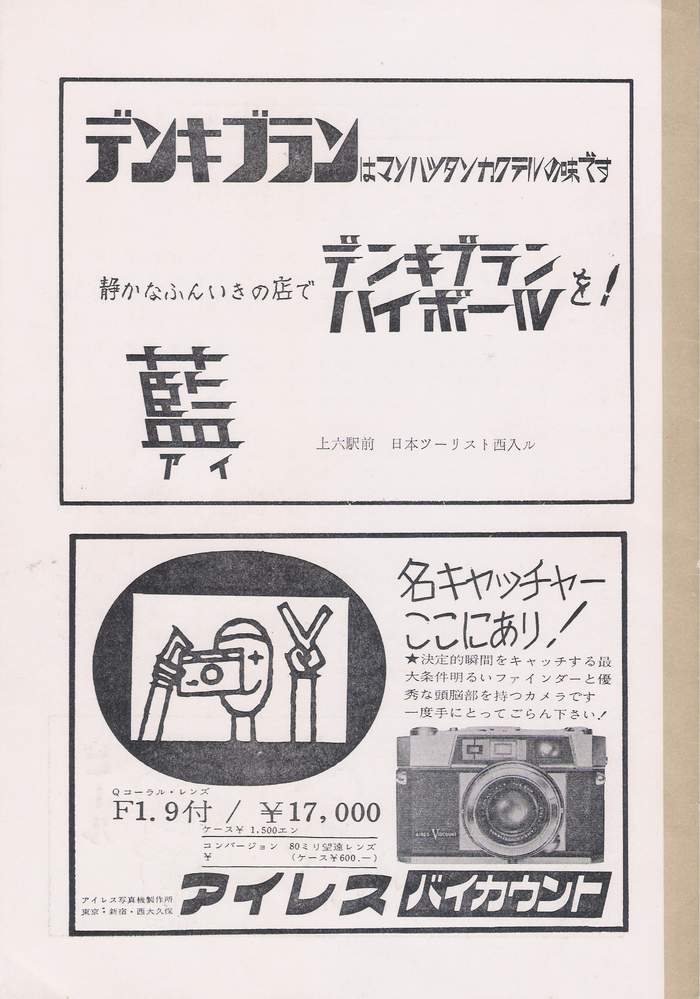 デンキブランはマンハッタンカクテルの味です
静かなふんいきの店で
デンキブラン
ハイボールを!
藍
アイ
上六駅前 日本ツーリスト西入ル
名キャッチャー
ここにあり!
★決定的瞬間をキャッチする最
大条件明るいファインダーと優
秀な頭脳部を持つカメラです
一度手にとってごらん下さい!
Qコーラル・レンズ
F1.9付 / ¥17,000
ケース¥ 1,500エン
コンバージョン 80ミリ望遠レンズ
¥ (ケース¥600.—)
AIRES VISCOUNT
アイレス写真機製作所
東京:新宿・西大久保
アイレス バイカウント